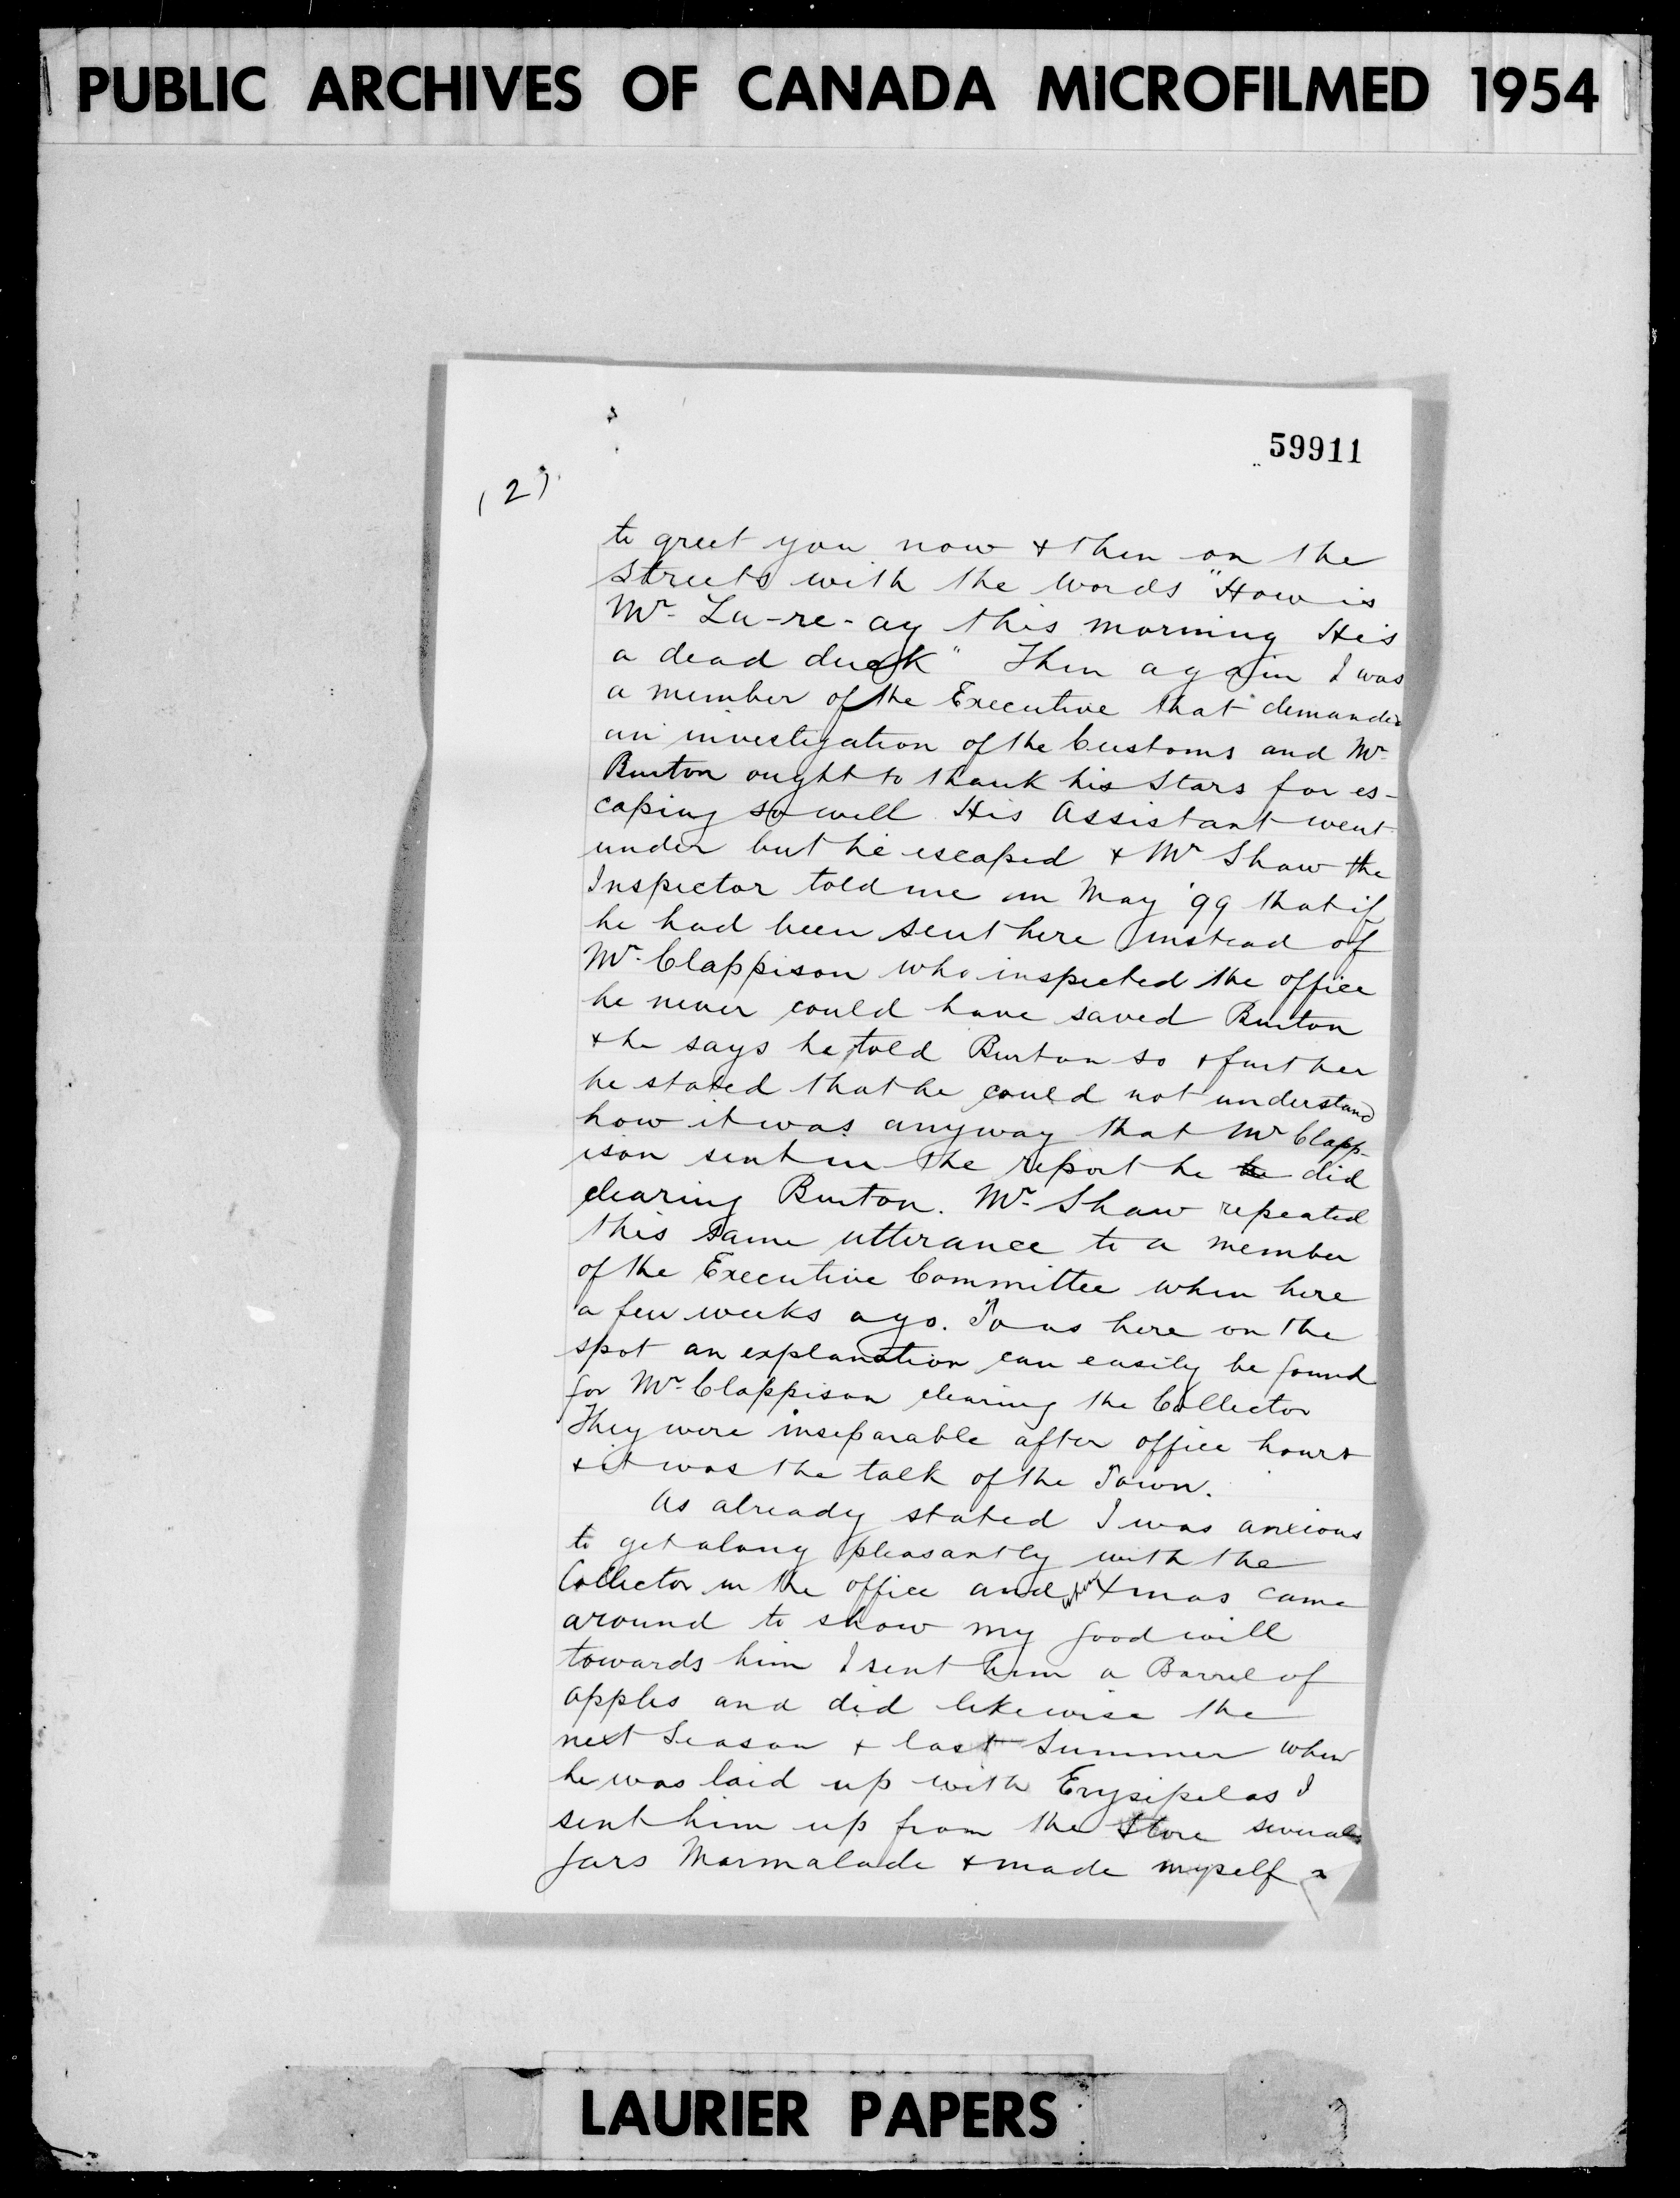 PUBLIC ARCHIVES OF CANADA MICROFILMED 1954
59911
(2)
to greet you now & then on the
Streets with the words "How is
Mr. La-re-ay this morning He's
a dead duck" Then again I was
a member of the Executive that demanded
an investigation of the Customs and Mr.
Burton ought to thank his Stars for es-
caping so well His Assistant went
under but he escaped & Mr Shaw the
Inspector told me in May '99 that if
he had been sent here instead of
Mr. Clappison who inspected the office
he never could have saved Burton
& he says he told Burton so & further
he stated that he could not understand
how it was anyway that Mr Clapp-
ison sent in the report he he did
clearing Burton. Mr. Shaw repeated
this same utterance to a member
of the Executive Committee when here
a few weeks ago. To us here on the
spot an explanation can easily be found
for Mr. Clappison clearing the Collector
They were inseparable after office hours
& it was the talk of the Town.
As already stated I was anxious
to get along pleasantly with the
Collector in the office and when Xmas came
around to show my good will
towards him I sent him a Barrel of
apples and did likewise the
next Season & last Summer when
he was laid up with Erysipelas I
sent him up from the Store several
Jars Marmalade & made myself a
LAURIER PAPERS